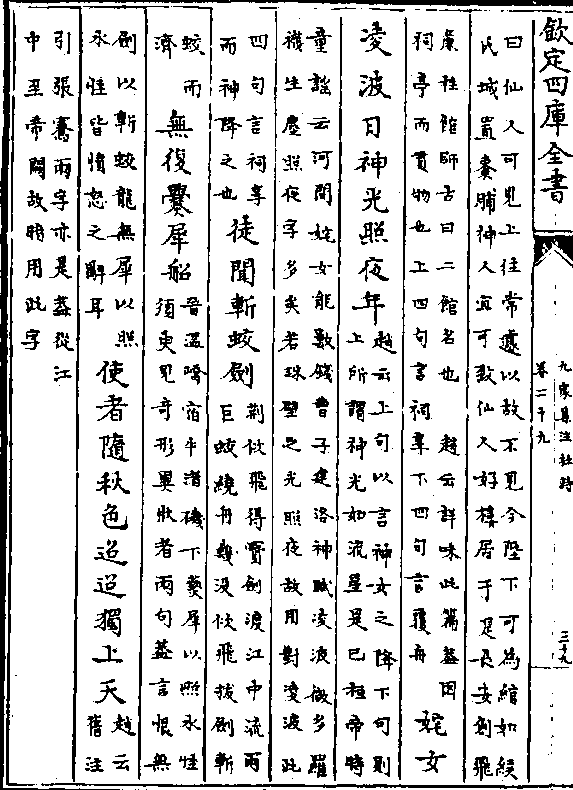 欽定四庫全書
九家集注杜詩
卷二十九
三十九
曰仙人可見上往常遽以故不見今陛下可為館如緱
氏城置棗脯神人宜可致仙人好樓居于是長安創飛
廉桂館師古曰二館名也 趙云詳味此篇蓋因
祠亭而賣物也上四句言祠事下四句言覆舟
姹女
凌波日神光照夜年
趙云上句以言神女之降下句則
上所謂神光如流星是已種帝時
童謠云河間姹女能數錢曹子建洛神賦凌波微步羅
襪生塵照夜字多矣若珠璧之光照夜故用對凌波此
四句言祠事
而神降之也
徒聞斬蛟劍
荆佽飛得寶劍渡江中流兩
巨蛟繞舟幾没佽飛拔劍斬
蛟而
濟
無復爨犀船
晉溫嶠宿牛渚磯下爇犀以照水怪
須臾見奇形異狀者兩句蓋言恨無
劍以斬蛟龍無犀以照
水怪皆憤怒之辭耳
使者隨秋色迢迢獨上天
趙云
舊注
引張騫兩字亦是蓋從江
中至帝闕故時用此字